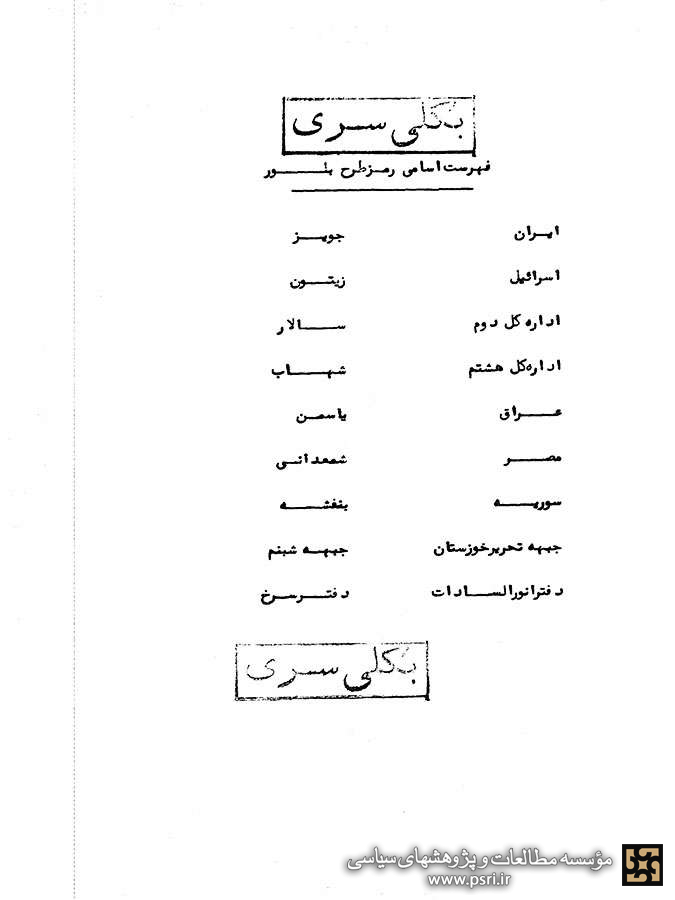 بکلی سری
فهرست اسامی رمز طرح بلور
ایران جویز
اسرائیل زیتون
اداره کل دوم سالار
اداره کل هشتم شهاب
عراق یاسمن
مصر شمعدانی
سوریه بنفشه
جبهه تحریر خوزستان جبهه شبنم
دفتر انور السادات دفتر سرخ
بکلی سری
مؤسسه مطالعات و پژوهشهای سیاسی
www.psri.ir